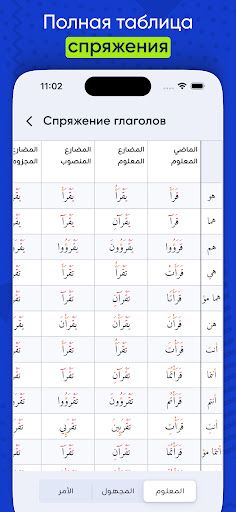 Полная таблица
спряжения
11:02
Спряжение глаголов
الماضي المعلوم المضارع المعلوم المضارع المنصوب المضارع المجزوم
هو قَرَأَ يَقْرَأُ يَقْرَأَ
هما قَرَآ يَقْرَآنِ يَقْرَآ
هم قَرَؤُوا يَقْرَؤُونَ يَقْرَؤُوا
هي قَرَأَتْ تَقْرَأُ تَقْرَأَ
هما مؤ قَرَأَتَا تَقْرَآنِ تَقْرَآ
هن قَرَأْنَ يَقْرَأْنَ يَقْرَأْنَ
أنت قَرَأْتَ تَقْرَأُ تَقْرَأَ
أنتما قَرَأْتُمَا تَقْرَآنِ تَقْرَآ
أنتم قَرَأْتُمْ تَقْرَؤُونَ تَقْرَؤُوا
أنت قَرَأْتِ تَقْرَئِينَ تَقْرَئِي
أنتما مؤ قَرَأْتُمَا تَقْرَآنِ تَقْرَآ
المعلوم المجهول الأمر